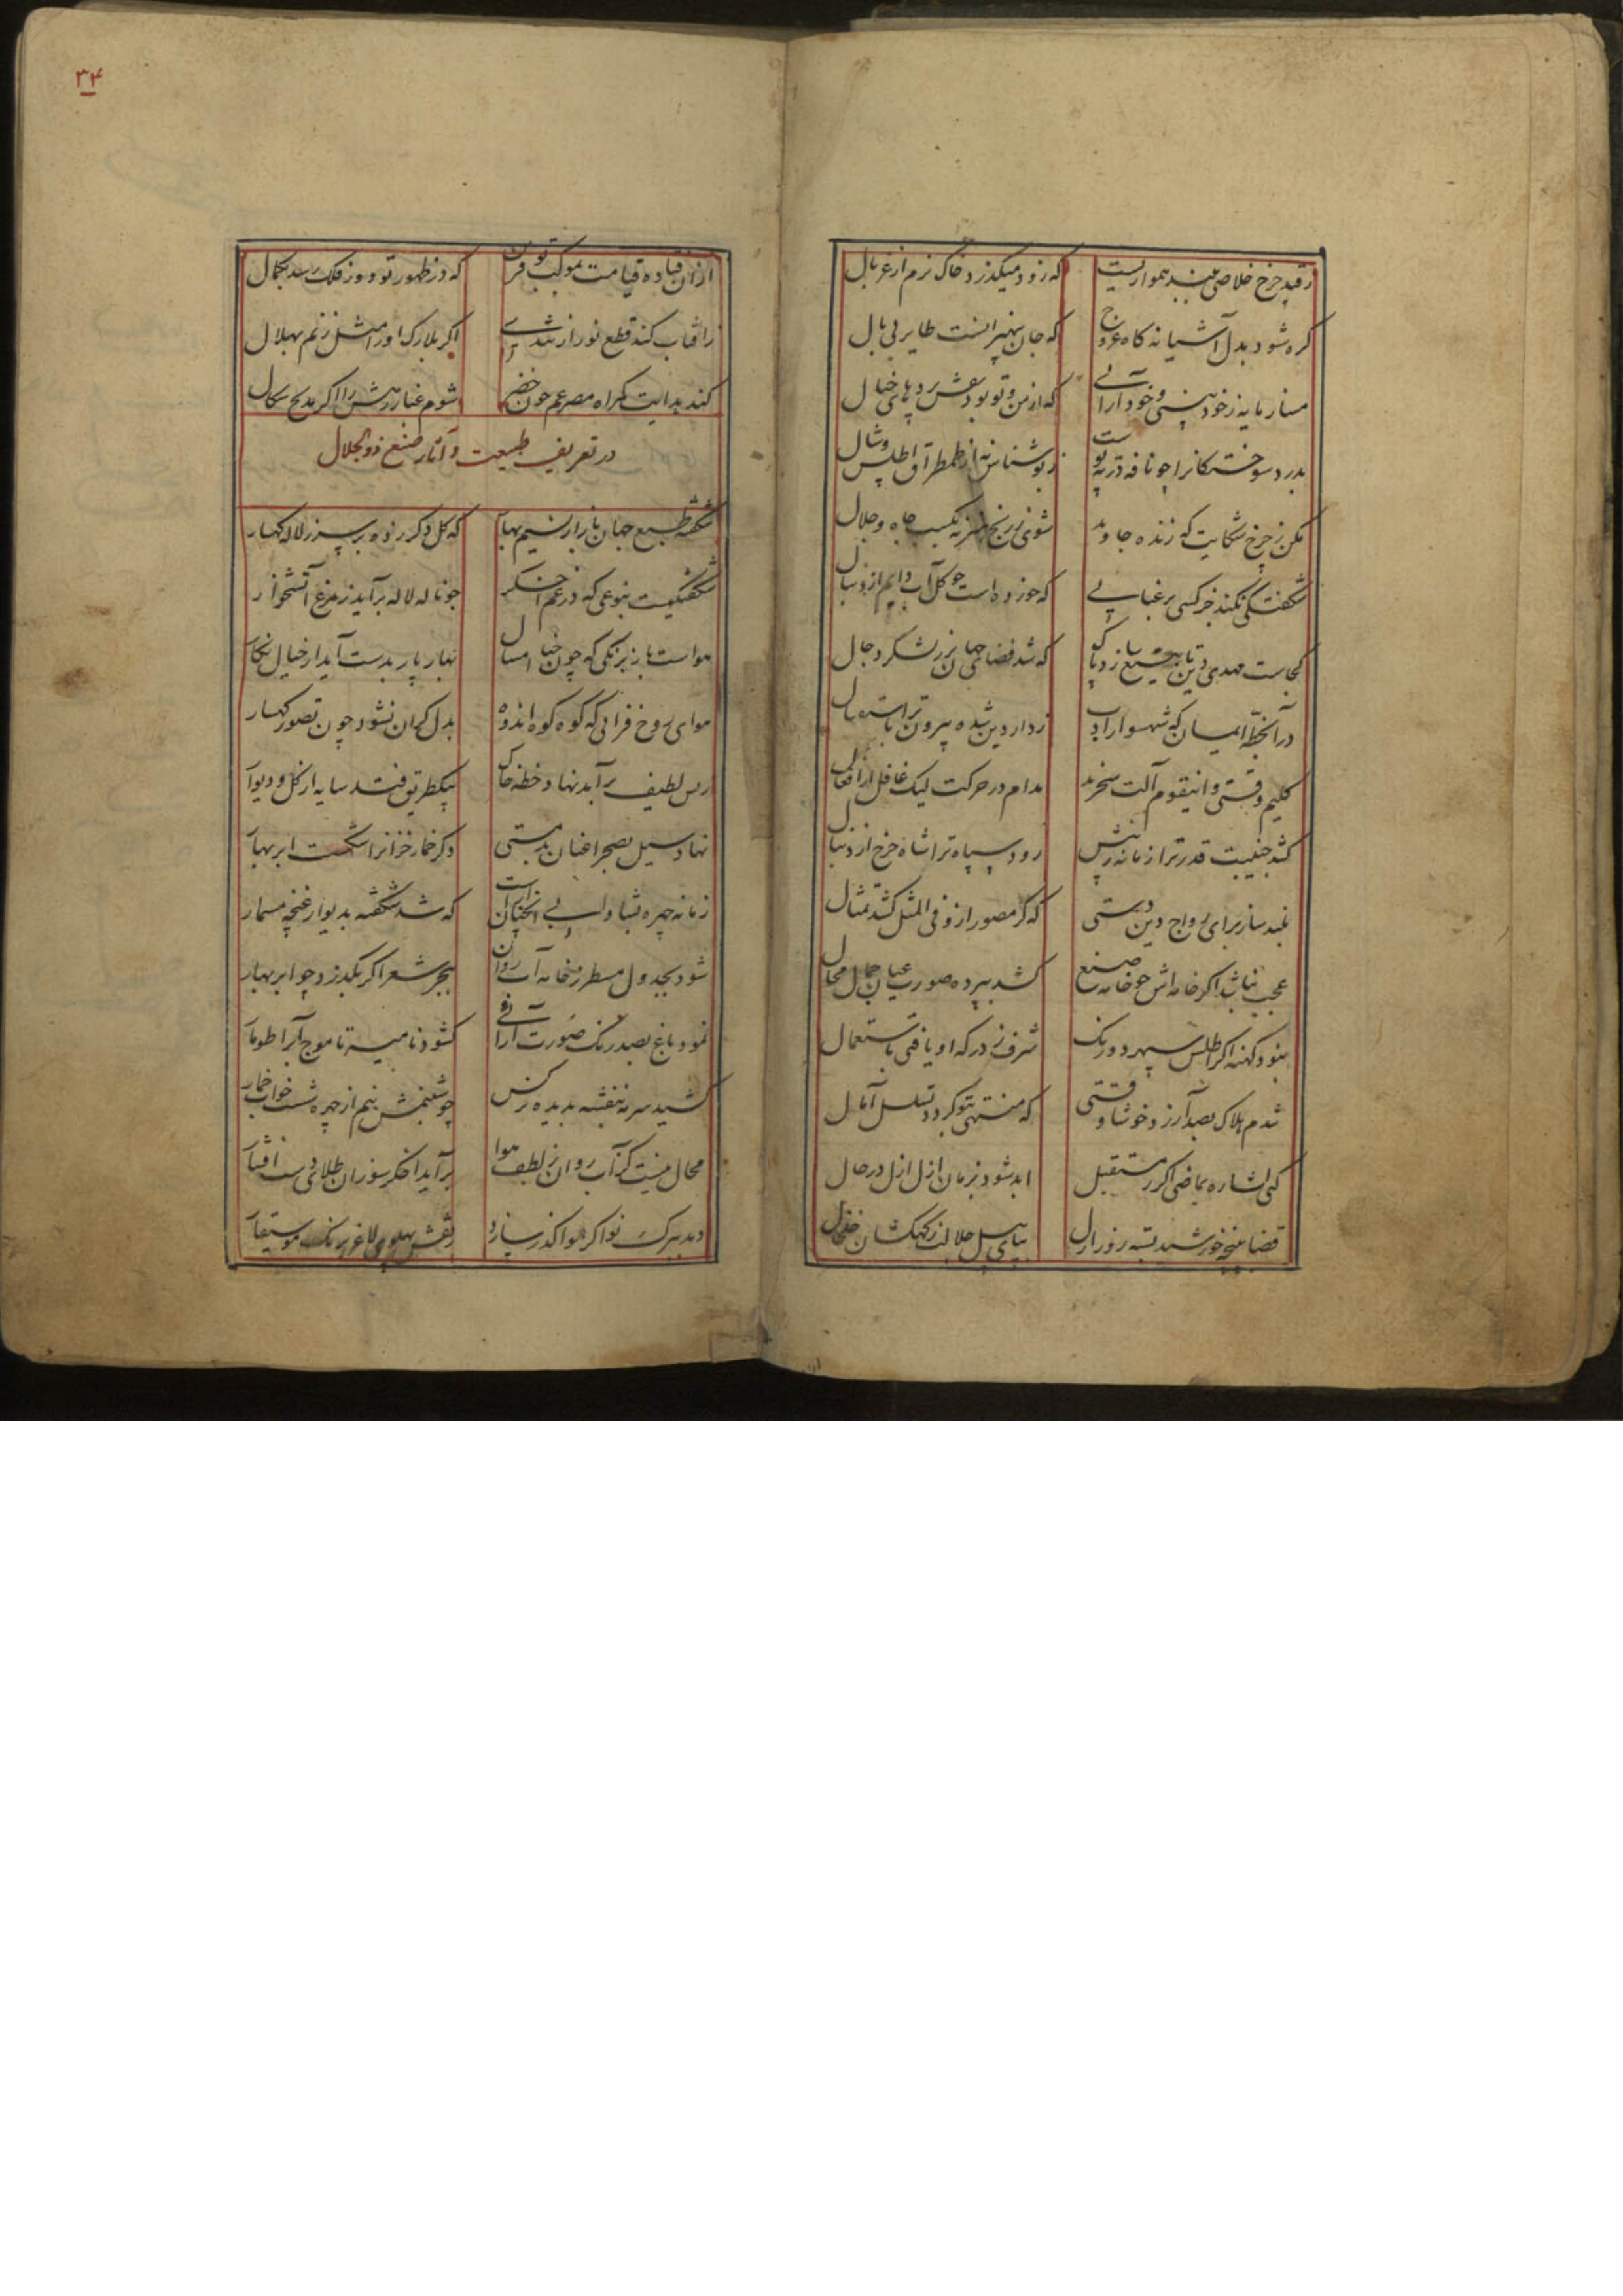 زقید چرخ خلاصی همواریست که زود میگذرد خاک نرم از غربال
گره شود بدل آشیانه گاه عروج که جان بی طایر بی بال
مساز مایه زخود بینی و خودآرائی که از من و تو بود نقش پرده‌های خیال
بدرد سوختگانرا چو نافه در ته پوست زبو شناس نه از طمطراق اطلس و شال
مکن ز چرخ شکایت که زنده جاوید شوی ز رنج هنر نه بکسب جاه و جلال
شگفتگی نکند خر کسی برعنایی که خورده است چو گل آب دایم از دنبال
کجاست مهدی دین تا به تیغ سازد پاک که شد فضای جهان پر ز لشکر دجال
در آن خطه که شهسوار ز دار دین شده بیرون ترا باستقبال
کلیم وقتی و اینقوم آلت سخرند مدام در حرکت لیک غافل از افعال
کشد جنیبت قدر ترا زمانه ز پیش رود سپاه ترا شاه چرخ از دنبال
بلند ساز برای رواج دین دستی که گر مصور ازو فی المثل کشد تمثال
عجب نباشد اگر خامه‌اش چو خامه صنع کشد بپرده صورت عیان جمال محال
نبود کهنه اگر اطلس سپهر دورنگ شرف ز درگه او یافتی باستعمال
شدم هلاک بصد آرزو خوشا وقتی که منتهی بتو گردد تسلسل آمال
کنی اشاره بماضی اگر ز مستقبل ابد شود بزمان ازل ازل در حال
قضا پنجه خورشید بسته روز ازل بپای پیل جلالت ز کهکشان خلخال
۳۴
از آن فتاده قیامت بموکب تو قرین که در ظهور تو دور فلک رسد بکمال
ز آفتاب کند قطع نور از تندی اگر بلارک او را مثل زنم بهلال
کند هدایت گمراه مصرعم چون خضر شوم غبار رهش را اگر مدیح سگال
در تعریف طبیعت و آثار صنع ذوالجلال
شکفته طبع جهان باز از نسیم بهار که گل دگر زده بر سر ز لاله کهسار
شگفتگیست بنوعی که در غم اخگر چو ناله لاله برآید ز مرغ آتشخوار
هواست باز برنگی که چون خیال امسال بهار پار بدست آید از خیال نگار
هوای روح فزائی که کوه کوه اندوه بدل گران نشود چون تصور کهسار
بس لطیف برآید نهاد خطه خاک بیکطریق فتد سایه از گل و دیوار
نهاد سیل بصحرا عنان بدمستی دگر خمار خزانرا شکست ابر بهار
زمانه چهره شادابی آنچنان است که شد شگفته بدیوار غنچه مسمار
شود بجدول مسطر ز خامه آب روان ببحر شعر اگر بگذرد چو ابر بهار
نمود باغ بصد رنگ صورت آرائی گشود نامیه تا موج آبرا طومار
کشید سرمه بنفشه بدیده نرگس چو شبنمش نم از چهره شست خواب خمار
محال نیست کز آب روان ز لطف هوا برآید اخگر سوزان طلای دست افشار
دمد ببرگ نوا گر هوا گذر سازد ز نقش پهلوی لاغر برنگ موسیقار